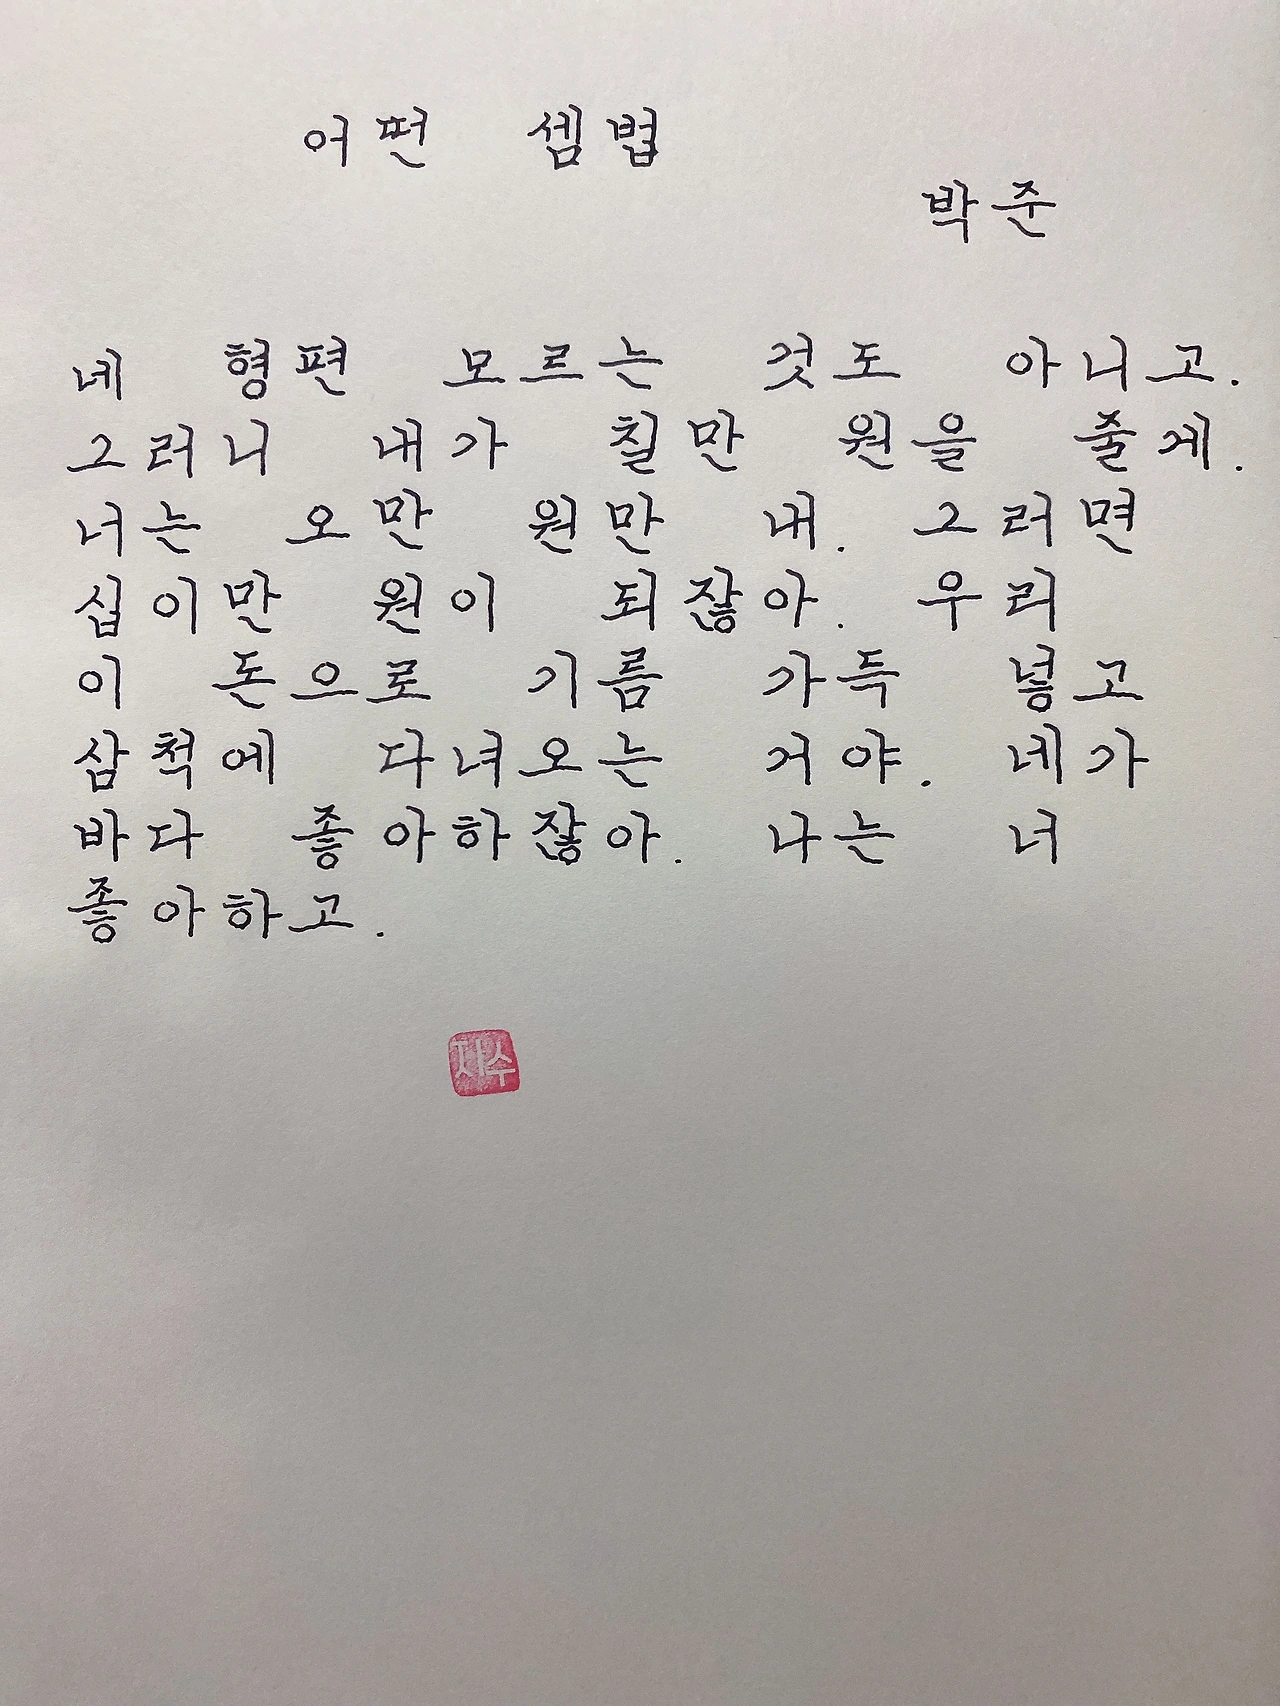 어떤 셈법
박준
네 형편 모르는 것도 아니고.
그러니 내가 칠만 원을 줄게.
너는 오만 원만 내. 그러면
십이만 원이 되잖아. 우리
이 돈으로 기름 가득 넣고
삼척에 다녀오는 거야. 네가
바다 좋아하잖아. 나는 너
좋아하고.
지수